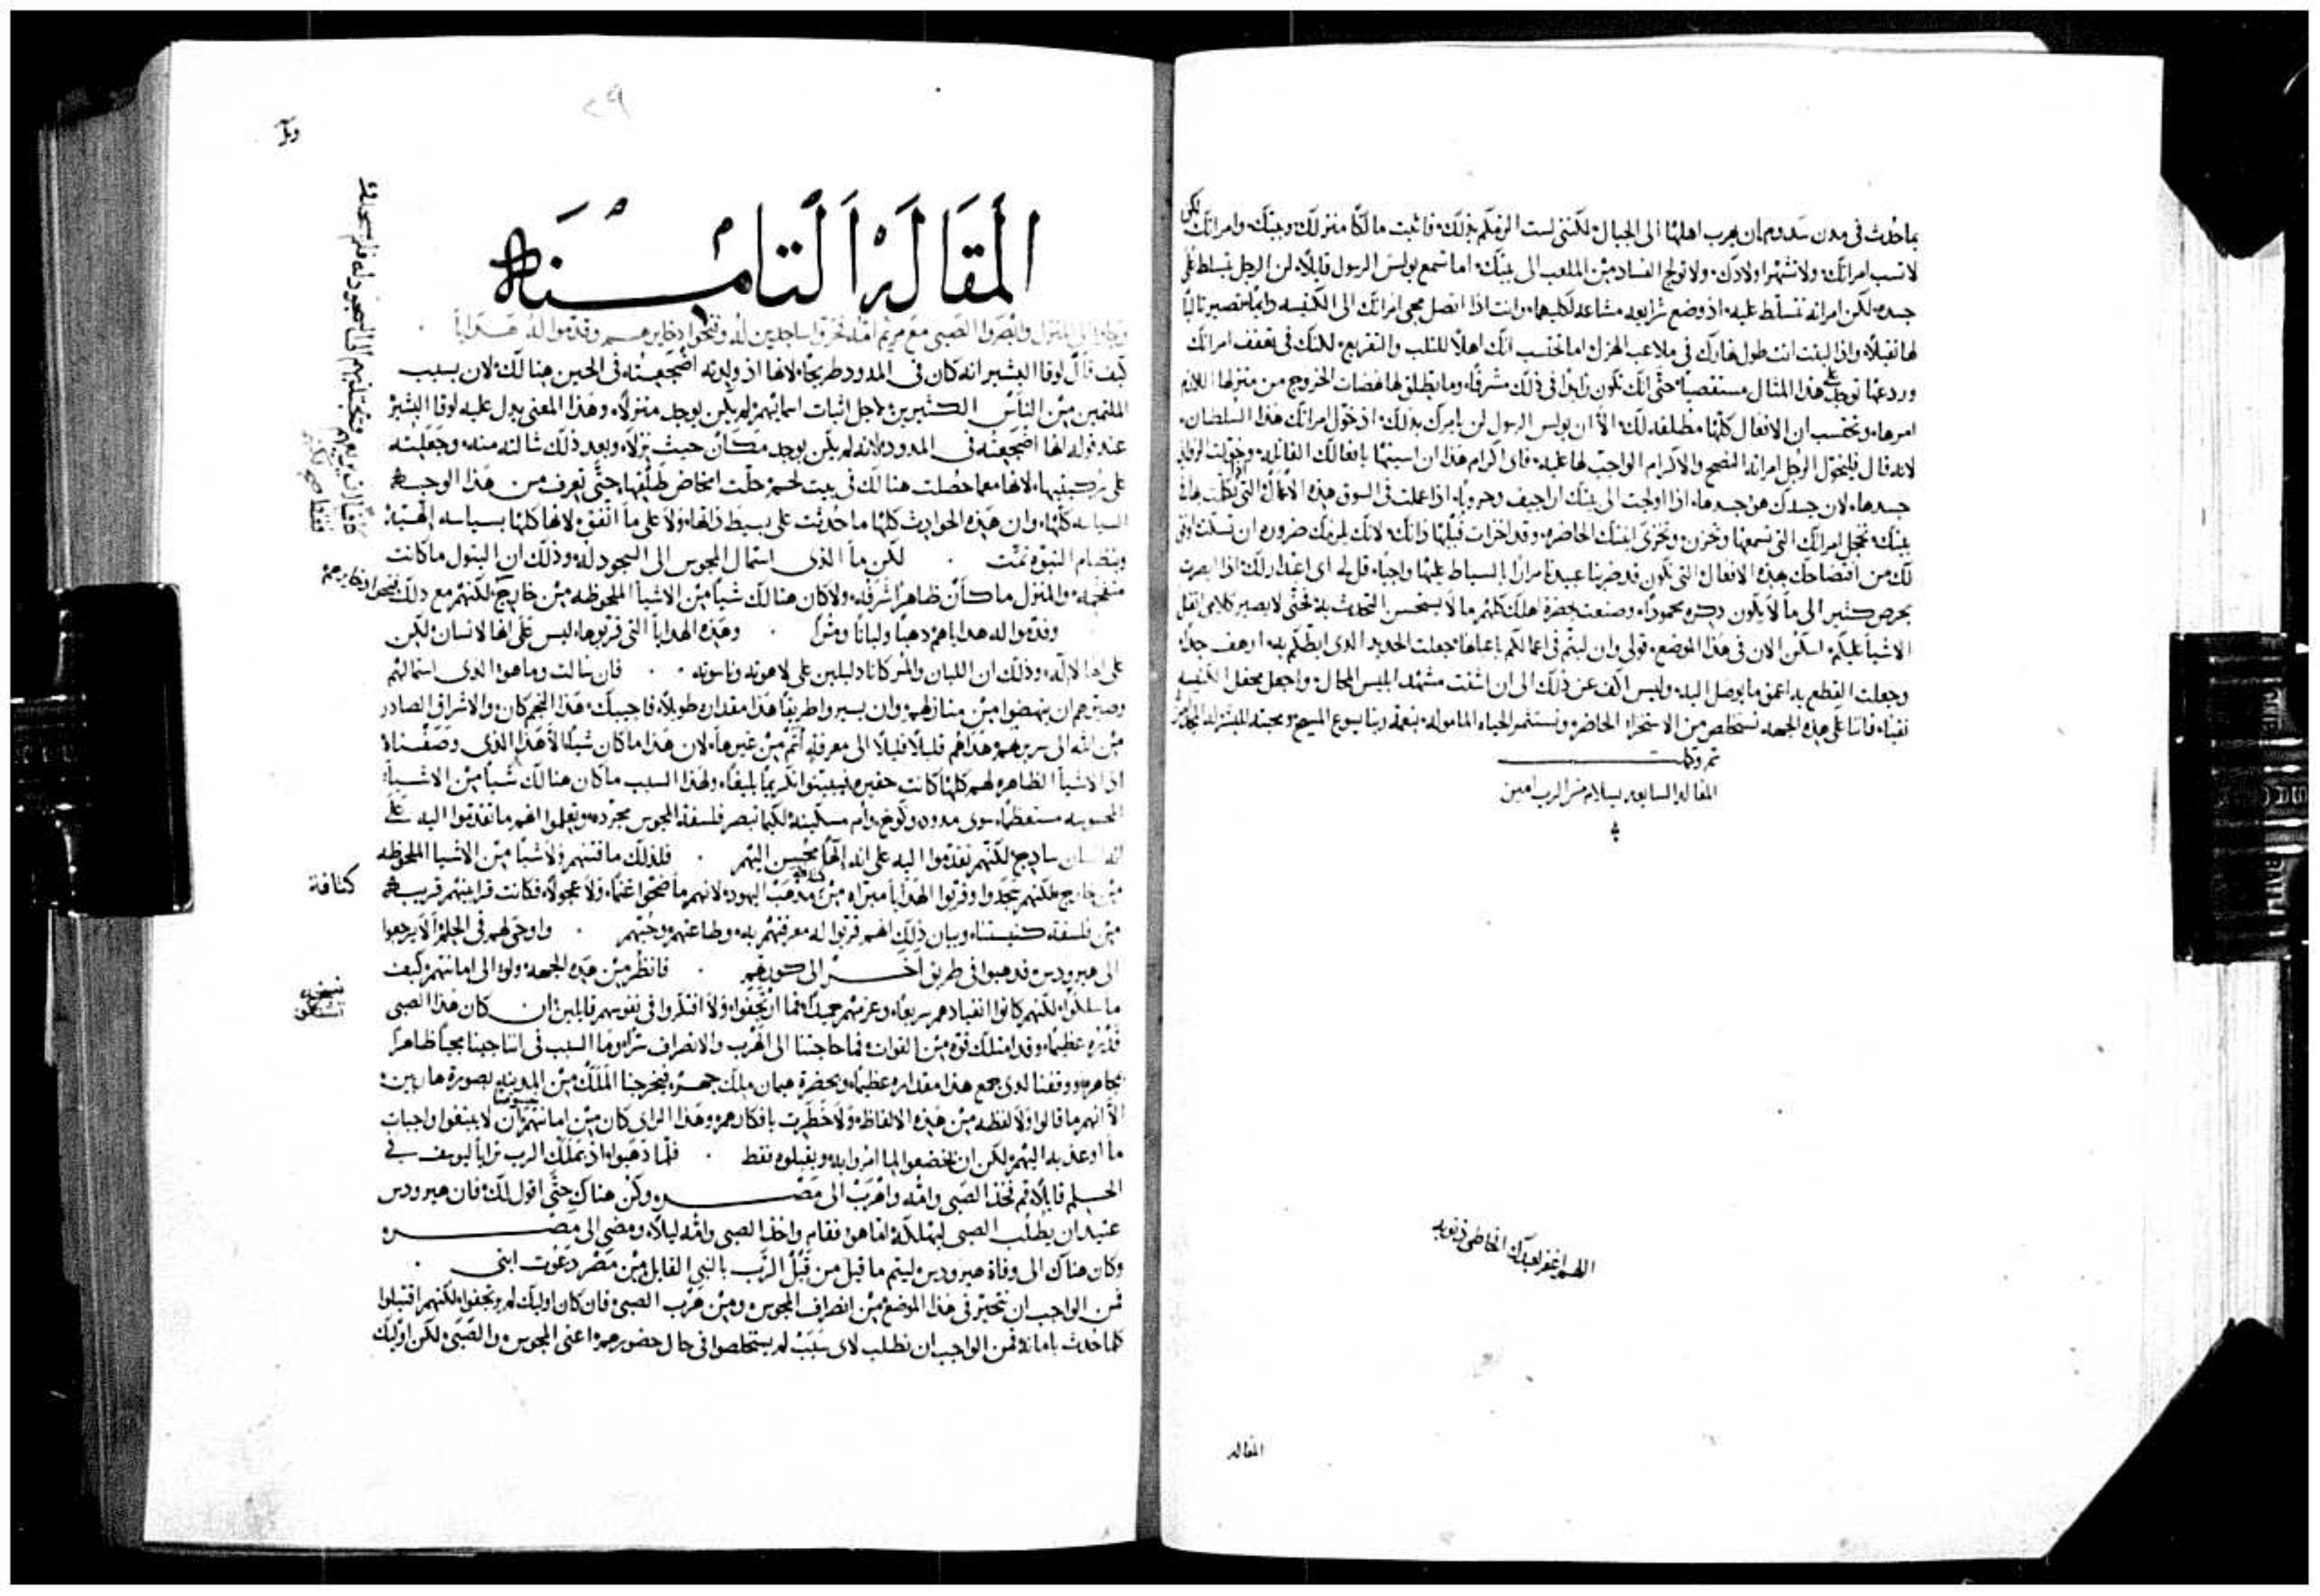 بما حدث في مدن سدوم ان يهرب اهلها الى الجبال لكنني لست الزمكم بذلك فاثبت مالكًا منزلك وبيتك وامراتك لكن
لا تسب امراتك ولا تشهر اولادك ولا تولج الفساد مِن الملعب الى بيتك اما تسمع بولس الرسول قايلاً لن الرجل يتسلط على
جسده لكن امراته تتسلط عليه اذ وضع شرايعه مشاعه لكليهما وانت اذا اتصل مجي امراتك الى الكنيسه دايمًا تصير ثالبًا
لها ثقيلاً واذا لبثت انت طول نهارك في ملاعب الهزل اما تحتسب انك اهلاً للثلب والتقريع لكنك في تعفف امراتك
وردعها توجد على هذا المثال مستقصيًا حتى انك تكون زايدًا في ذلك مشرفًا وما تطلق لها نهضات الخروج من منزلها اللازم
امرها وتحتسب ان الافعال كلها مطلقه لك الا ان بولس الرسول لن يامرك بذلك اذ خوّل امراتك هذا السلطان
لانه قال فليخول الرجل امراته النصح والاكرام الواجب لها عليه فاي اكرام هذا ان اسيتها بافعالك
جسدها لان جسدك هو جسدها اذا اولجت الى بيتك اراجيف وحروبًا اذا عملت في السوق هذه الاعمال التي
بيتك تخجل امراتك التي تسمعها وتحزن وتخزى ابنتك الحاضره وقد اخزات قبلها ذاتك لانك يلزمك ضروره ان تسكت او
لك من افتضاحك بهذه الافعال التي تكون قد ضربنا عبيدنا مرارًا بالسياط عليها واجبًا قل لي اي اعتذار لك اذا ابصرت
بحرص كثير الى ما لا يكون ذكره محمودًا وصنعت بحضرة اهلك كلهم ما لا يستحسن التحدث به فحتى لا يصير كلامي اثقل
الاشيا عليكم اسكن الان في هذا الموضع قولي وان لبثتم في اعمالكم باعيانها جعلت الحديد الذي ابطكم به ارهف جدًا
وجعلت القطع به اعمق ما يوصل اليه وليس اكف عن ذلك الى ان اشتت مشهد ابليس المحال واجعل محفل الكنيسه
نقيًا فاننا على هذه الجهه نستخلص من الاستخزاء الحاضره ونستثمر الحياه الماموله بنعمة ربنا يسوع المسيح ومحبته للبشر
تم وكملت
المقاله السابعه بسلام من الرب امين
اللهم اغفر لعبدك الخاطي ذنوبه
المقاله
٢٩
المقالة الثامنة
وجاوا الى المنزل وابصروا الصبي مع مريم امه فخروا ساجدين له وفتحوا ذخايرهم وقدموا له هدايا
كيف قال لوقا البشير انه كان في المدود طريحًا لانها اذ ولدته اضجعته في الحين هنالك لان بسبب
الملتمين مِن الناس الكثيرين لاجل اثبات اسمايهم لم يكن يوجد منزلاً وهذا المعنى يدل عليه لوقا البشير
عند قوله انها اضجعته في المدود لانه لم يكن يوجد مكان حيث نزلا وبعد ذلك شالته منه وجعلته
على ركبتيها لانها معما حصلت هنالك في بيت لحم حلت المخاض طلقها حتى تعرف من هذا الوجه
السياسه كلها وان هذه الحوادث كلها ما حدثت على بسيط ذاتها ولا على ما اتفق لانها كلها بسياسه الهيه
ونظام النبوه تمت . لكن ما الذي استمال المجوس الى السجود له وذلك ان البتول ما كانت
مفخمه والمنزل ما كان ظاهرًا شرفه ولا كان هنالك شيًا مِن الاشيا الملحوظه مِن خارج لكنهم مع ذلك فتحوا ذخايرهم
وقدموا له هداياهم ذهبًا ولبانًا ومُرًا . وهذه الهدايا التي قربوها ليس على انها لانسان لكن
على انها لاله وذلك ان اللبان والمر كانا دليلين على لاهوته وناسوته . فان سالت وما هو الذي استمالهم
وصيرهم ان ينهضوا مِن منازلهم وان يسيروا طريقًا هذا مقداره طويلاً فاجيبك هذا النجم كان والاشراق الصادر
مِن الله الى سريرتهم هداهم قليلاً قليلاً الى معرفة اتم مِن غيرها لان هذا ما كان شيًا الا هذا الذي وصفناه
اذ الاشيا الظاهره لهم كلها كانت حقيره ليبينوا تكريمًا بليغًا ولهذا السبب ما كان هنالك شيًا مِن الاشيا
المحسوسه مستعظمًا سوى مدود وكوخ وام مسكينه لكيما تبصر فلسفة المجوس مجرده وتعلم انهم ما تقدموا اليه على
انه انسان سادج لكنهم تقدموا اليه على انه الهًا محسن اليهم . فلذلك ما فتنهم ولا شيًا مِن الاشيا الملحوظه
مِن خارج لكنهم سجدوا وقربوا الهدايا مبراه مِن كثافة مذهب اليهود لانهم ما ضحوا غنمًا ولا عجولاً فكانت قرابينهم قريبه
مِن فلسفة كنيستنا وبيان ذلك انهم قربوا له معرفتهم به وطاعتهم وحبهم . واوحي لهم في الحلم الا يرجعوا
الى هيرودس فذهبوا في طريق اخر الى كورتهم . فانظر مِن هذه الجهه ولو الى امانتهم كيف
ما سلكوا لكنهم كانوا انقيادهم سريعًا وعزمهم حميدًا فما ارتجفوا ولا افتكروا في نفوسهم قايلين ان كان هذا الصبي
قدره عظيمًا وقد امتلك قوه مِن القوات فما حاجتنا الى الهرب والانصراف سرًا وما السبب في اننا جينا مجيًا ظاهرًا
مجاهره ووقفنا لدى جمع هذا مقداره عظيمًا وبحضرة هيمان ملك جهره فيخرجنا الملك مِن المدينه بصورة هاربين
الا انهم ما قالوا ولا لفظه مِن هذه الالفاظ ولا خطرت بافكارهم وهذا الراي كان مِن امانتهم ان لا يبتغوا واجبات
ما اوعز به اليهم لكن ان يخضعوا لما امروا به ويقبلوه فقط . فلما ذهبوا اذ بملك الرب ترايا ليوسف في
الحلم قايلاً قم فخذ الصبي وامه واهرب الى مصر وكُن هناك حتى اقول لك فان هيرودس
عتيد ان يطلب الصبي ليهلكه فقام واخذ الصبي وامه ليلاً ومضى الى مصر
وكان هناك الى وفاة هيرودس ليتم ما قيل من قبل الرب بالنبي القايل مِن مصر دعوت ابني .
فمن الواجب ان نتحير في هذا الموضع مِن انصراف المجوس ومِن هرب الصبي فان كان اوليك لم يرتجفوا لكنهم اقتبلوا
كلما حدث بامانه فمن الواجب ان نطلب لاي سبب لم يستخلصوا في حال حضورهم اعني المجوس والصبي لكن اوليك
كثافة
نسخه